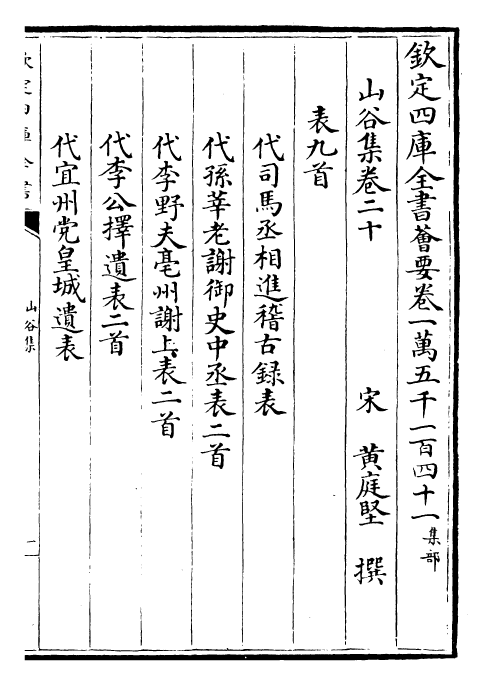 欽定四庫全書薈要卷一萬五千一百四十一集部
山谷集卷二十
宋 黃庭堅 撰
表九首
代司馬丞相進稽古錄表
代孫莘老謝御史中丞表二首
代李野夫亳州謝上表二首
代李公擇遺表二首
代宜州党皇城遺表
欽定四庫全書
山谷集